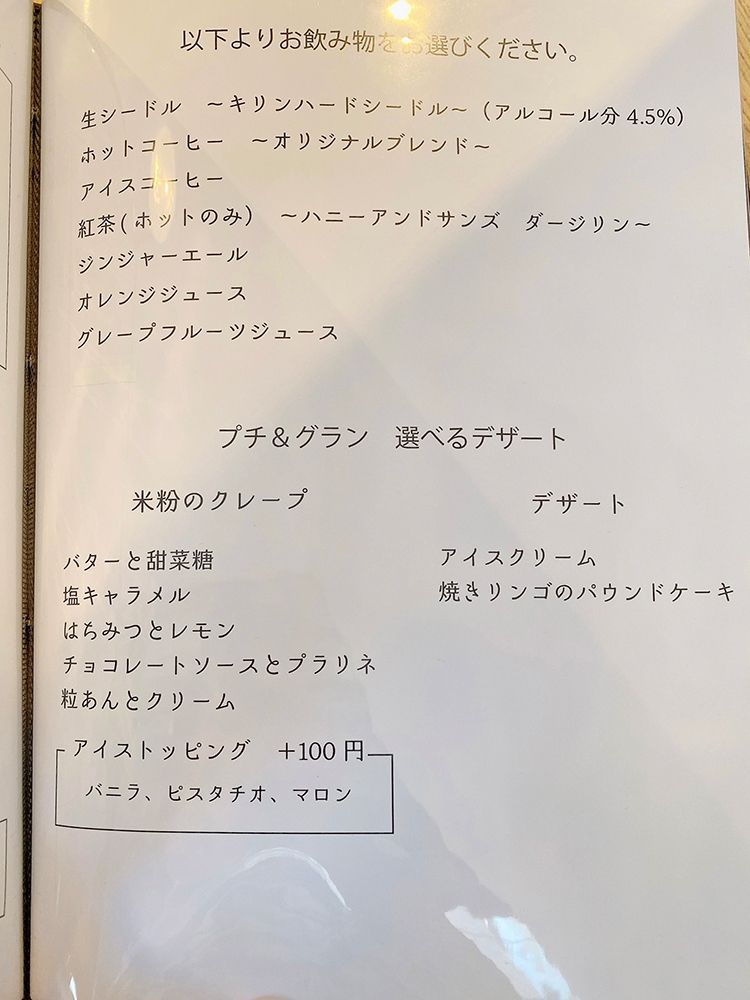 以下よりお飲み物をお選びください。
生シードル　～キリンハードシードル～（アルコール分 4.5%）
ホットコーヒー　～オリジナルブレンド～
アイスコーヒー
紅茶(ホットのみ)　～ハニーアンドサンズ　ダージリン～
ジンジャーエール
オレンジジュース
グレープフルーツジュース
プチ＆グラン　選べるデザート
米粉のクレープ
バターと甜菜糖
塩キャラメル
はちみつとレモン
チョコレートソースとプラリネ
粒あんとクリーム
アイストッピング　+100 円
バニラ、ピスタチオ、マロン
デザート
アイスクリーム
焼きリンゴのパウンドケーキ